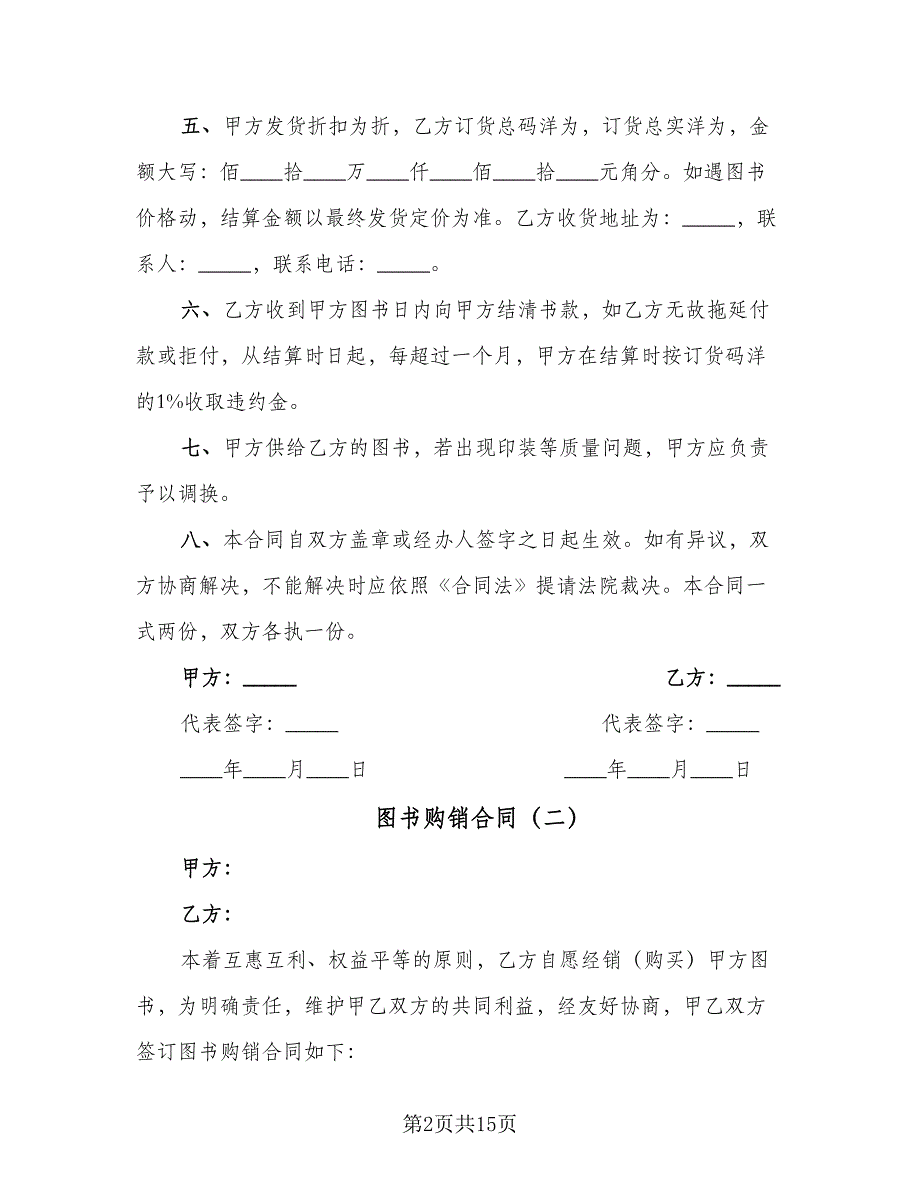 五、甲方发货折扣为折，乙方订货总码洋为，订货总实洋为，金
额大写：佰____拾____万____仟____佰____拾____元角分。如遇图书
价格动，结算金额以最终发货定价为准。乙方收货地址为：_____，联
系人：_____，联系电话：_____。
六、乙方收到甲方图书日内向甲方结清书款，如乙方无故拖延付
款或拒付，从结算时日起，每超过一个月，甲方在结算时按订货码洋
的1%收取违约金。
七、甲方供给乙方的图书，若出现印装等质量问题，甲方应负责
予以调换。
八、本合同自双方盖章或经办人签字之日起生效。如有异议，双
方协商解决，不能解决时应依照《合同法》提请法院裁决。本合同一
式两份，双方各执一份。
甲方：_____ 乙方：_____
代表签字：_____ 代表签字：_____
____年____月____日 ____年____月____日
图书购销合同（二）
甲方：
乙方：
本着互惠互利、权益平等的原则，乙方自愿经销（购买）甲方图
书，为明确责任，维护甲乙双方的共同利益，经友好协商，甲乙双方
签订图书购销合同如下：
第2页共15页